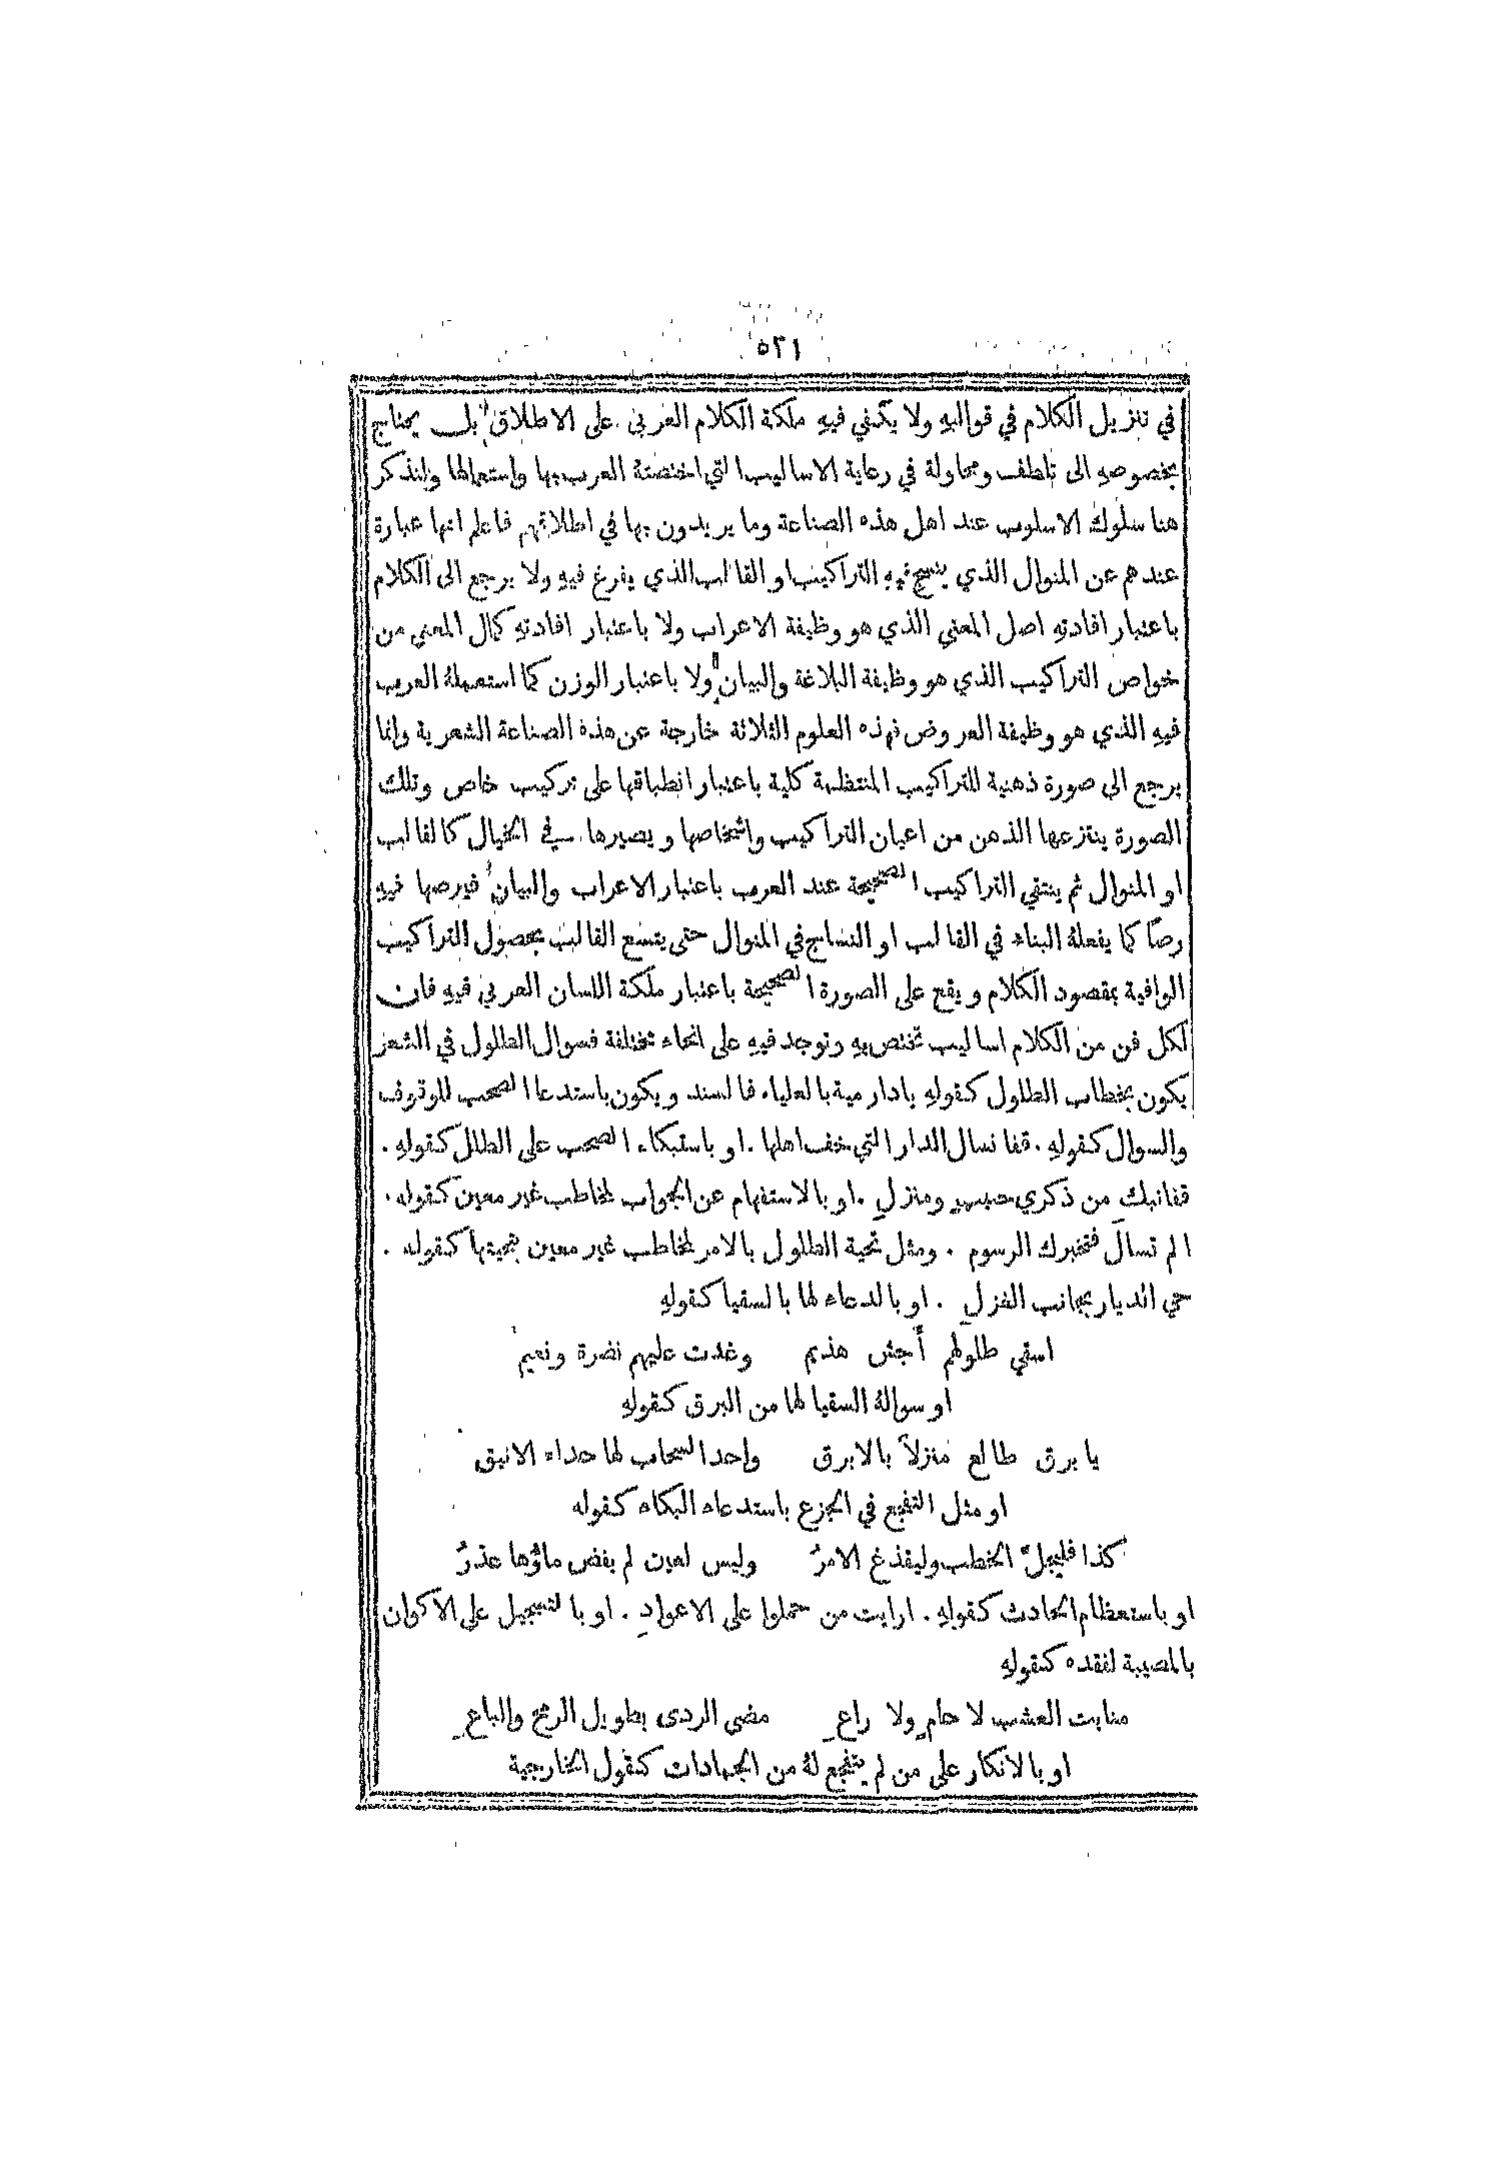 ٥٢١
في تنزيل الكلام في قوالبهِ ولا يكفي فيهِ ملكة الكلام العربي على الاطلاق بل يحتاج
بخصوصهِ الى تلطف ومحاولة في رعاية الاساليب التي اختصتهُ العرب بها واستعمالها ولنذكر
هنا سلوك الاسلوب عند اهل هذه الصناعة وما يريدون بها في اطلاقهم فاعلم انها عبارة
عندهم عن المنوال الذي ينسج فيهِ التراكيب او القالب الذي يفرغ فيهِ ولا يرجع الى الكلام
باعتبار افادتهِ اصل المعني الذي هو وظيفة الاعراب ولا باعتبار افادتهِ كمال المعني من
خواص التراكيب الذي هو وظيفة البلاغة والبيان ولا باعتبار الوزن كما استعملهُ العرب
فيهِ الذي هو وظيفة العروض فهذه العلوم الثلاثة خارجة عن هذه الصناعة الشعرية وانما
يرجع الى صورة ذهنية للتراكيب المنتظمة كلية باعتبار انطباقها على تركيب خاص وتلك
الصورة ينتزعها الذهن من اعيان التراكيب واشخاصها ويصيرها في الخيال كالقالب
او المنوال ثم ينتقي التراكيب الصحيحة عند العرب باعتبار الاعراب والبيان فيرصها فيهِ
رصاً كما يفعلهُ البناء في القالب او النساج في المنوال حتى يتسع القالب بحصول التراكيب
الوافية بمقصود الكلام ويقع على الصورة الصحيحة باعتبار ملكة اللسان العربي فيهِ فان
لكل فن من الكلام اساليب تختص بهِ وتوجد فيهِ على انحاء مختلفة فسوال الطلول في الشعر
يكون بخطاب الطلول كقولهِ يادار مية بالعلياء فالسند ويكون باستدعا الصحب للوقوف
والسوال كقولهِ . قفا نسال الدار التي خف اهلها . او باستبكاء الصحب على الطلل كقولهِ .
قفانبك من ذكري حبيبٍ ومنزلِ . او بالاستفهام عن الجواب لمخاطب غير معين كقوله .
الم تسال فتخبرك الرسوم . ومثل تحية الطلول بالامر لمخاطب غير معين بتحيتها كقوله .
حي الديار بجانب الغزلِ . او بالدعاء لها بالسقيا كقولهِ
اسقي طلولهم أجش هذيم وغدت عليهم نضرة ونعيم
او سوالهُ السقيا لها من البرق كقولهِ
يا برق طالع منزلاً بالابرق واحدا السحاب لها حداء الانيق
او مثل التفجع في الجزع باستدعاء البكاء كقوله
كذا فليجلّ الخطب وليفدغ الامرُ وليس لعين لم يفض ماؤها عذرُ
او باستعظام الحادث كقولهِ . ارايت من حملوا على الاعوادِ . او بالتسجيل على الاكوان
بالمصيبة لفقده كقولهِ
منابت العشب لا حامٍ ولا راعِ مضى الردى بطويل الرمح والباعِ
او بالانكار على من لم يتفجع لهُ من الجمادات كقول الخارجية